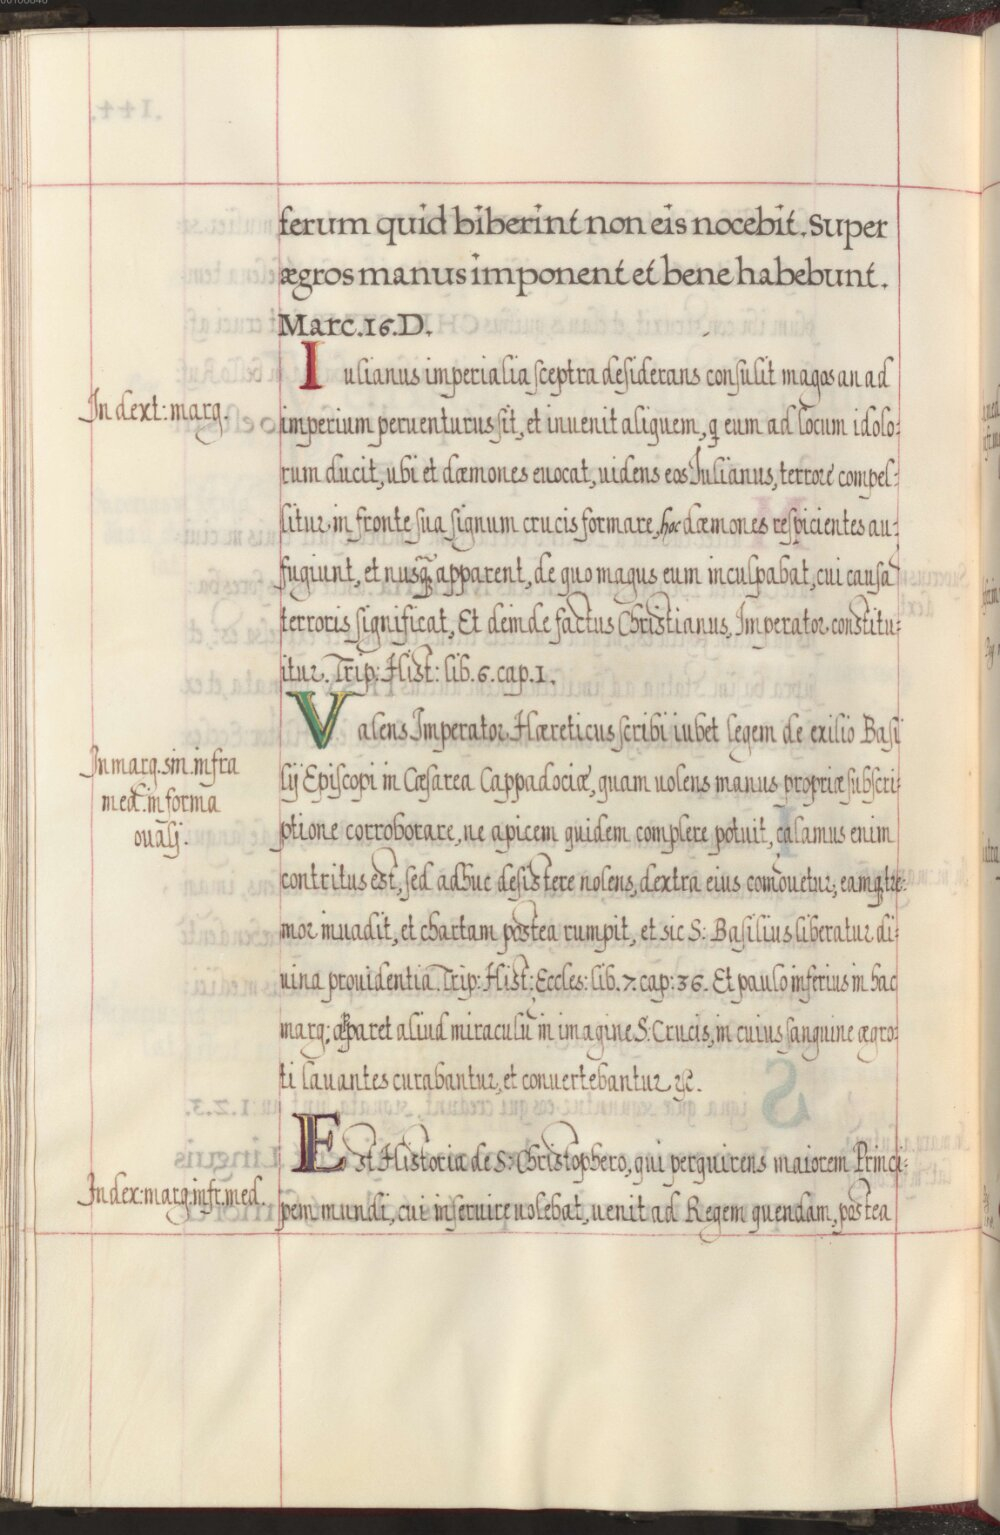 ferum quid biberint non eis nocebit. Super
ægros manus imponent et bene habebunt.
Marc. 16. D.
Iulianus imperialia sceptra desiderans consulit magos an ad
In dext: marg.
imperium peruenturus sit, et inuenit aliquem, q eum ad locum idolo:
rum ducit, ubi et dæmones euocat, uidens eos Iulianus, terrore compel:
litur in fronte sua signum crucis formare, hoc dæmones respicientes au:
fugiunt, et nusq apparent, de quo magus eum inculpabat, cui causa
terroris significat, Et deinde factus Christianus, Imperator constitu:
itur. Trip: Hist: lib. 6. cap. 1.
Valens Imperator Hæreticus scribi iubet legem de exilio Basi
In marg. sin. infra
med. in forma
ouali.
lij Episcopi in Cæsarea Cappadociæ, quam uolens manus propriæ subscri:
ptione corroborare, ne apicem quidem complere potuit, calamus enim
contritus est, sed adhuc desistere nolens, dextra eius comouetur, eamq tre:
mor inuadit, et chartam postea rumpit, et sic S: Basilius liberatur di:
uina prouidentia. Trip: Hist: Eccles: lib. 7. cap: 36. Et paulo inferius in hac
marg: apparet aliud miraculū in imagine S. Crucis, in cuius sanguine ægro:
ti lauantes curabantur, et conuertebantur &c.
Est Historia de S: Christophero, qui perquirens maiorem Princi:
In dex: marg. infr. med.
pem mundi, cui inseruire uolebat, uenit ad Regem quendam, postea